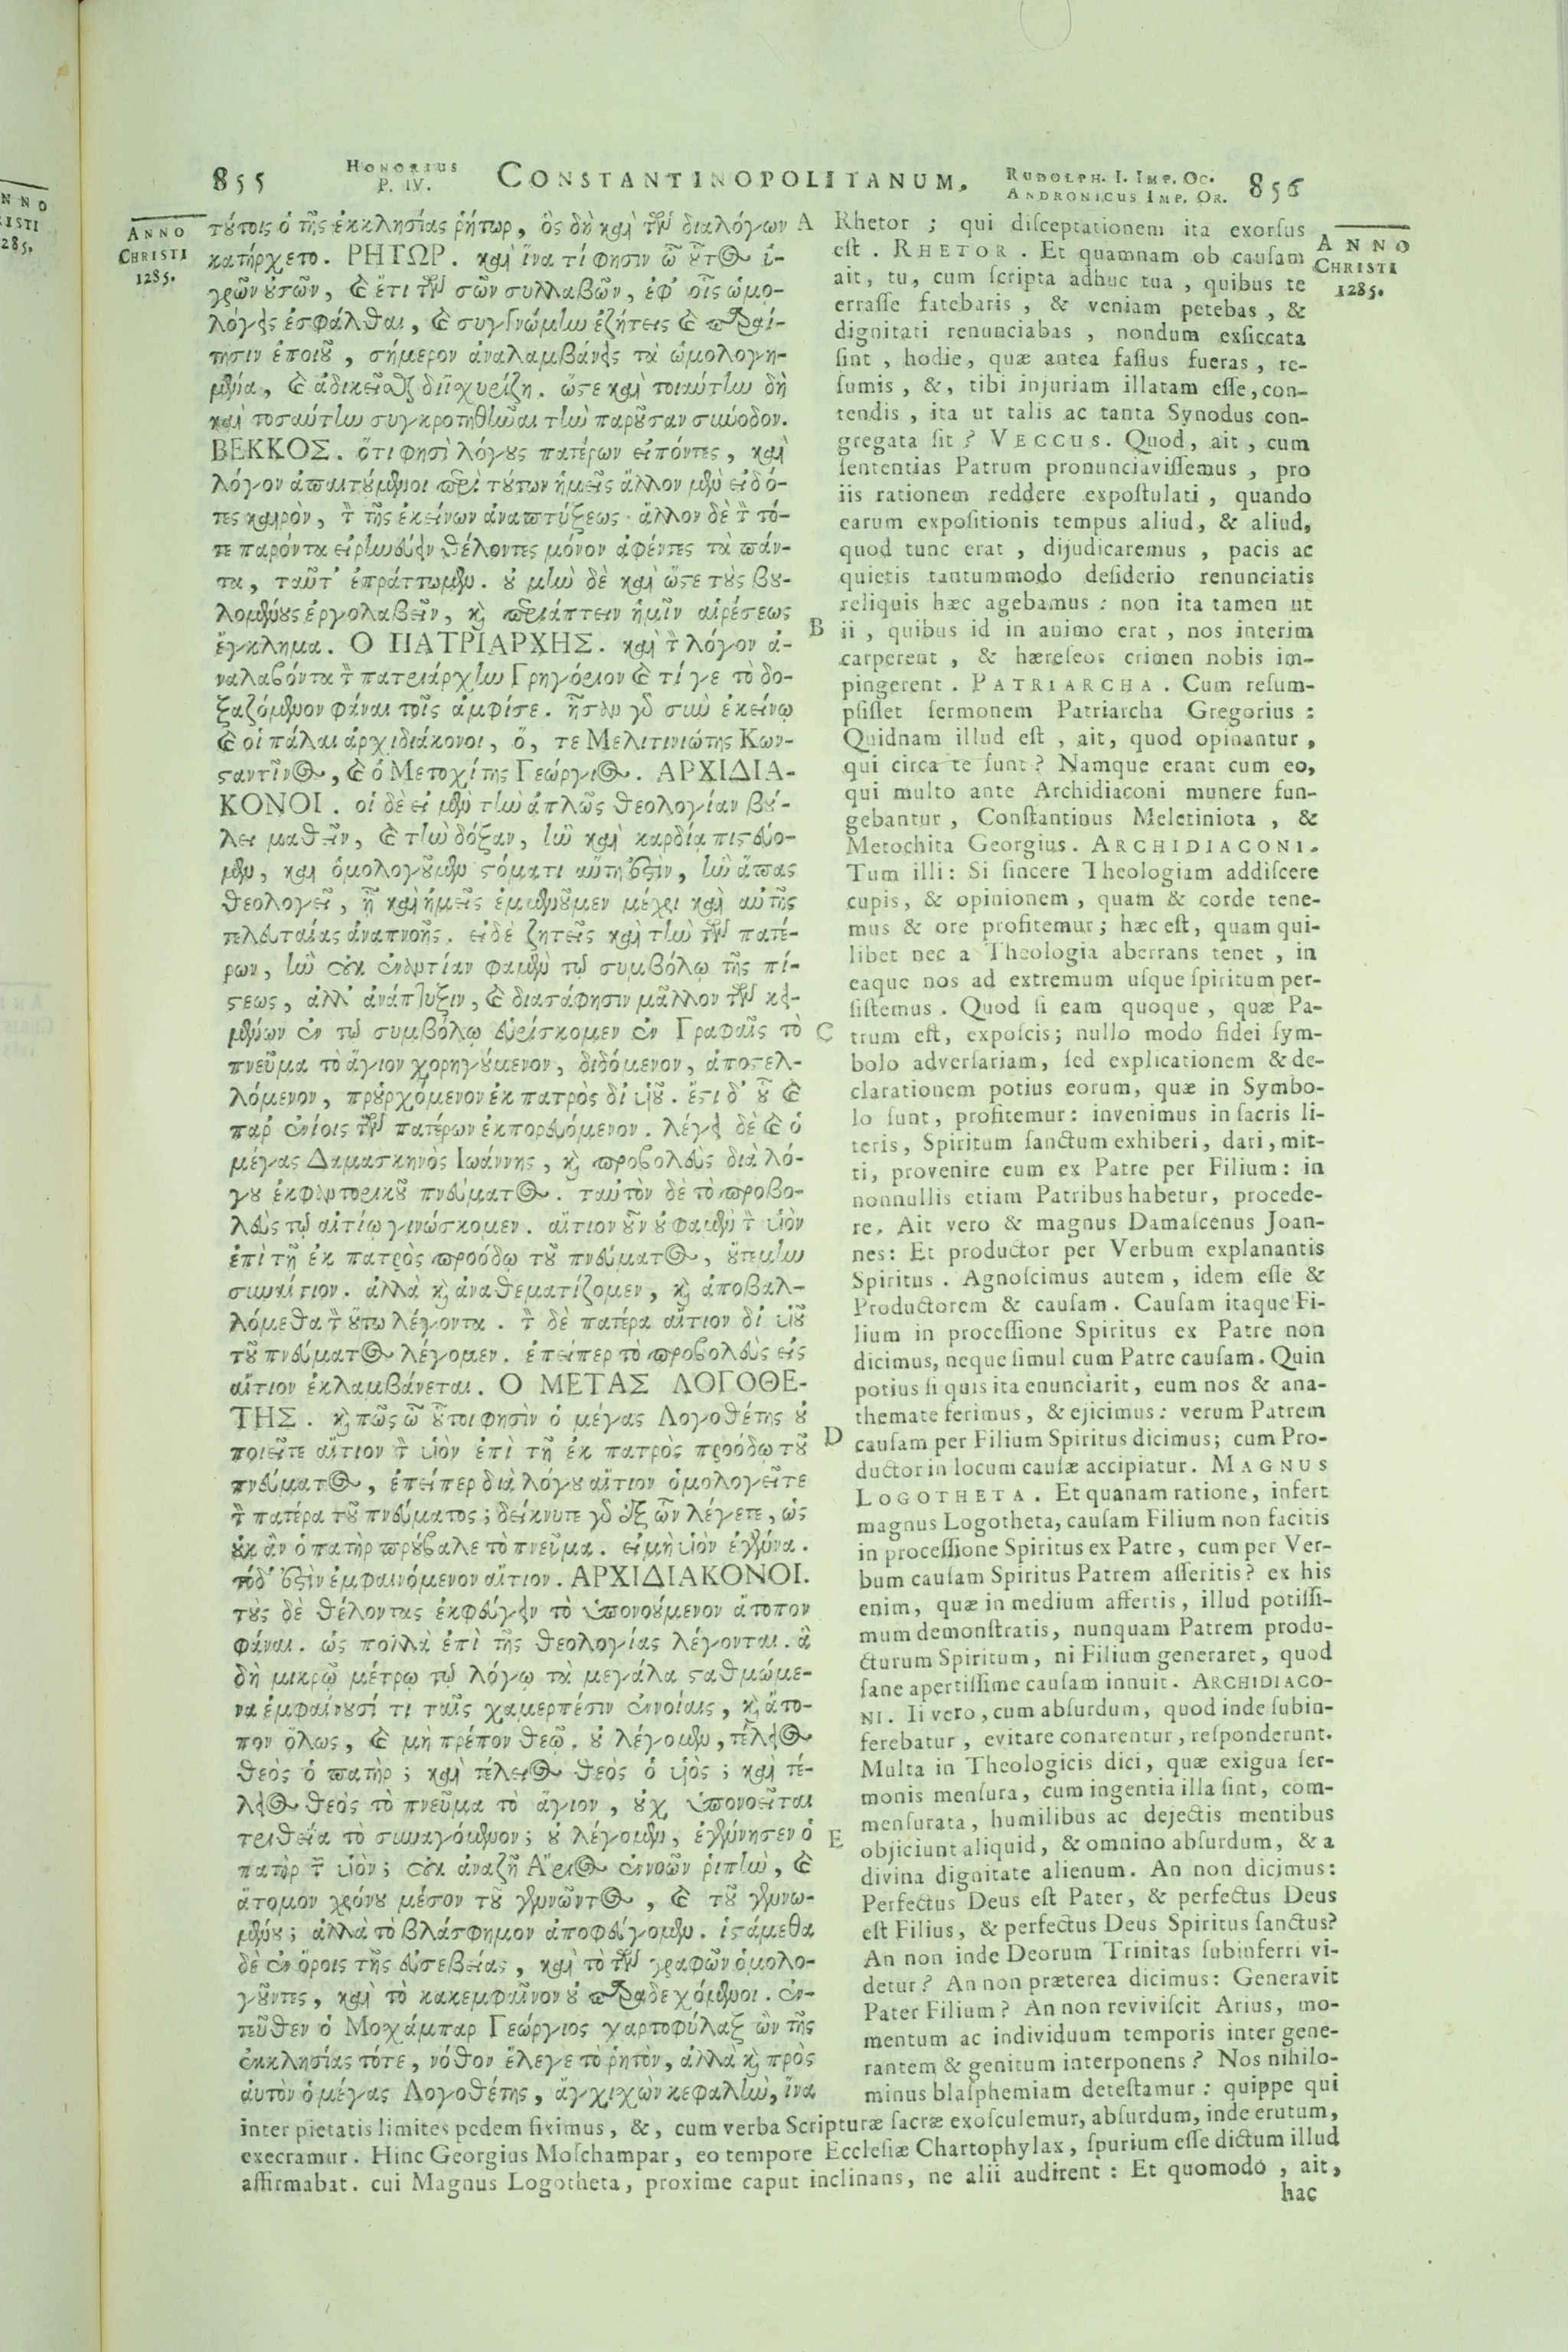 855
HONORIUS
P. IV.
CONSTANTINOPOLITANUM.
RUDOLPH. I. IMP. OC.
ANDRONICUS IMP. OR.
856
ANNO
CHRISTI
1285.
τούτοις ὁ τῆς ἐκκλησίας ῥήτωρ, ὃς δὴ καὶ τῶν διαλόγων
κατήρχετο. ΡΗΤΩΡ. καὶ ἵνα τί φησιν ὦ οὗτος ὑ-
γρῶν οὐσῶν, καὶ ἔτι τῶν σῶν συλλαβῶν, ἐφ' οἷς ὡμο-
λόγεις ἐσφάλθαι, καὶ συγγνώμην ἐζήτεις καὶ παραί-
τησιν ἐποιοῦ, σήμερον ἀναλαμβάνεις τὰ ὡμολογη-
μένα, καὶ ἀδικεῖσθαι διϊσχυρίζη. ὥστε καὶ τοιαύτην δὴ
καὶ τοσαύτην συγκροτηθῆναι τὴν παροῦσαν σύνοδον.
ΒΕΚΚΟΣ. ὅτι φησὶ λόγους πατέρων εἰπόντες, καὶ
λόγον ἀπαιτούμενοι περὶ τούτων ἡμεῖς ἄλλον μὲν εἰδό-
τες καιρὸν, τὸν τῆς ἐκείνων ἀναπτύξεως· ἄλλον δὲ τὸν τό-
τε παρόντα εἰρηνεύειν θέλοντες μόνον ἀφέντες τὰ πάν-
τα, ταῦτ' ἐπράττομεν. οὐ μὴν δὲ καὶ ὥστε τοὺς βου-
λομένους ἐργολαβεῖν, καὶ περιάπτειν ἡμῖν αἱρέσεως
ἔγκλημα. Ο ΠΑΤΡΙΑΡΧΗΣ. καὶ τὸν λόγον ἀ-
ναλαβόντα τὸν πατριάρχην Γρηγόριον καὶ τί γε τὸ δο-
ξαζόμενον φάναι τοῖς ἀμφί σε. ἦσαν γὰρ σὺν ἐκείνῳ
καὶ οἱ πάλαι ἀρχιδιάκονοι, ὅ, τε Μελιτινιώτης Κων-
σταντῖνος, καὶ ὁ Μετοχίτης Γεώργιος. ΑΡΧΙΔΙΑ-
ΚΟΝΟΙ. οἱ δὲ εἰ μὲν τὴν ἁπλῶς θεολογίαν βού-
λει μαθεῖν, καὶ τὴν δόξαν, ἣν καὶ καρδίᾳ πιστεύο-
μεν, καὶ ὁμολογοῦμεν στόματι αὕτη ἐστὶν, ἣν ἅπας
θεολογεῖ, ᾗ καὶ ἡμεῖς ἐμμενοῦμεν μέχρι καὶ αὐτῆς
τελευταίας ἀναπνοῆς. εἰ δὲ ζητεῖς καὶ τὴν τῶν πατέ-
ρων, ἣν οὐκ ἐναντίαν φαμὲν τῷ συμβόλῳ τῆς πί-
στεως, ἀλλ' ἀνάπτυξιν, καὶ διασάφησιν μᾶλλον τῶν κει-
μένων ἐν τῷ συμβόλῳ εὑρίσκομεν ἐν Γραφαῖς τὸ
πνεῦμα τὸ ἅγιον χορηγούμενον, διδόμενον, ἀποστελ-
λόμενον, προερχόμενον ἐκ πατρὸς δι' υἱοῦ. ἔστι δ' οὗ καὶ
παρ' ἐνίοις τῶν πατέρων ἐκπορευόμενον. λέγει δὲ καὶ ὁ
μέγας Δαμασκηνὸς Ἰωάννης, καὶ προβολεὺς διὰ λό-
γου ἐκφαντορικοῦ πνεύματος. ταὐτὸν δὲ τὸ προβο-
λεὺς τῷ αἰτίῳ γινώσκομεν. αἴτιον οὖν οὐ φαμὲν τὸν υἱὸν
ἐπὶ τῇ ἐκ πατρὸς προόδῳ τοῦ πνεύματος, οὔτε μὴν
συναίτιον. ἀλλὰ καὶ ἀναθεματίζομεν, καὶ ἀποβαλ-
λόμεθα τὸν οὕτω λέγοντα. τὸν δὲ πατέρα αἴτιον δι' υἱοῦ
τοῦ πνεύματος λέγομεν. ἐπείπερ τὸ προβολεὺς εἰς
αἴτιον ἐκλαμβάνεται. Ο ΜΕΓΑΣ ΛΟΓΟΘΕ-
ΤΗΣ. καὶ πῶς ὦ οὗτοι φησὶν ὁ μέγας Λογοθέτης οὐ
ποιεῖτε αἴτιον τὸν υἱὸν ἐπὶ τῇ ἐκ πατρὸς προόδῳ τοῦ
πνεύματος, ἐπείπερ διὰ λόγου αἴτιον ὁμολογεῖτε
τὸν πατέρα τοῦ πνεύματος; δείκνυτε γὰρ ἐξ ὧν λέγετε, ὡς
οὐκ ἂν ὁ πατὴρ προύβαλε τὸ πνεῦμα. εἰ μὴ υἱὸν ἐγέννα.
τόδ' ἐστὶν ἐμφαινόμενον αἴτιον. ΑΡΧΙΔΙΑΚΟΝΟΙ.
τοὺς δὲ θέλοντας ἐκφεύγειν τὸ ὑπονοούμενον ἄτοπον
φάναι. ὡς πολλὰ ἐπὶ τῆς θεολογίας λέγονται. ἃ
δὴ μικρῷ μέτρῳ τῷ λόγῳ τὰ μεγάλα σταθμώμε-
να ἐμφαίνουσί τι ταῖς χαμερπέσιν ἐννοίαις, καὶ ἄτο-
πον ὅλως, καὶ μὴ πρέπον θεῷ. οὐ λέγομεν, τέλειος
θεὸς ὁ πατὴρ; καὶ τέλειος θεὸς ὁ υἱὸς; καὶ τέ-
λειος θεὸς τὸ πνεῦμα τὸ ἅγιον, οὐχ ὑπονοεῖται
τριθεΐα τὸ συναγόμενον; οὐ λέγομεν, ἐγέννησεν ὁ
πατὴρ τὸν υἱόν; οὐκ ἀναζῇ Ἄρειος ἐννοῶν ῥιπὴν, καὶ
ἄτομον χρόνου μέσον τοῦ γεννῶντος, καὶ τοῦ γεννω-
μένου; ἀλλὰ τὸ βλάσφημον ἀποφεύγομεν. ἱστάμεθα
δὲ ἐν ὅροις τῆς εὐσεβείας, καὶ τὸ τῶν γραφῶν ὁμολο-
γοῦντες, καὶ τὸ κακεμφαῖνον οὐ παραδεχόμενοι. ἐν-
τεῦθεν ὁ Μοχάμπαρ Γεώργιος χαρτοφύλαξ ὢν τῆς
ἐκκλησίας τότε, νόθον ἔλεγε τὸ ῥητὸν, ἀλλὰ καὶ πρὸς
αὐτὸν ὁ μέγας Λογοθέτης, ἄγχι σχὼν κεφαλὴν, ἵνα
A
B
C
D
E
Rhetor ; qui disceptationem ita exorsus
est . RHETOR . Et quamnam ob causam
ait, tu, cum scripta adhuc tua , quibus te
errasse fatebaris , & veniam petebas , &
dignitati renunciabas , nondum exsiccata
sint , hodie, quæ antea fassus fueras , re-
sumis , &, tibi injuriam illatam esse, con-
tendis , ita ut talis ac tanta Synodus con-
gregata sit ? VECCUS. Quod, ait , cum
sententias Patrum pronunciavissemus , pro
iis rationem reddere expostulati , quando
earum expositionis tempus aliud, & aliud,
quod tunc erat , dijudicaremus , pacis ac
quietis tantummodo desiderio renunciatis
reliquis hæc agebamus : non ita tamen ut
ii , quibus id in animo erat , nos interim
carperent , & hæreseos crimen nobis im-
pingerent . PATRIARCHA . Cum resum-
psisset sermonem Patriarcha Gregorius :
Quidnam illud est , ait, quod opinantur ,
qui circa te sunt? Namque erant cum eo,
qui multo ante Archidiaconi munere fun-
gebantur , Constantinus Meletiniota , &
Metochita Georgius. ARCHIDIACONI.
Tum illi: Si sincere Theologiam addiscere
cupis, & opinionem , quam & corde tene-
mus & ore profitemur; hæc est, quam qui-
libet nec a Theologia aberrans tenet , in
eaque nos ad extremum usque spiritum per-
sistemus . Quod si eam quoque , quæ Pa-
trum est, exposcis; nullo modo fidei sym-
bolo adversariam, sed explicationem & de-
clarationem potius eorum, quæ in Symbo-
lo sunt, profitemur: invenimus in sacris li-
teris, Spiritum sanctum exhiberi, dari, mit-
ti, provenire eum ex Patre per Filium: in
nonnullis etiam Patribus habetur, procede-
re. Ait vero & magnus Damascenus Joan-
nes: Et productor per Verbum explanantis
Spiritus . Agnoscimus autem , idem esse &
Productorem & causam . Causam itaque Fi-
lium in processione Spiritus ex Patre non
dicimus, neque simul cum Patre causam. Quin
potius si quis ita enunciarit, eum nos & ana-
themate ferimus, & ejicimus: verum Patrem
causam per Filium Spiritus dicimus; cum Pro-
ductor in locum causæ accipiatur. MAGNUS
LOGOTHETA . Et quanam ratione, infert
magnus Logotheta, causam Filium non facitis
in processione Spiritus ex Patre , cum per Ver-
bum causam Spiritus Patrem asseritis? ex his
enim, quæ in medium affertis, illud potissi-
mum demonstratis, nunquam Patrem produ-
cturum Spiritum , ni Filium generaret , quod
sane apertissime causam innuit. ARCHIDIACO-
NI. Ii vero, cum absurdum, quod inde subin-
ferebatur , evitare conarentur, responderunt.
Multa in Theologicis dici, quæ exigua ser-
monis mensura, cum ingentia illa sint, com-
mensurata, humilibus ac dejectis mentibus
objiciunt aliquid, & omnino absurdum, & a
divina dignitate alienum. An non dicimus:
Perfectus Deus est Pater, & perfectus Deus
est Filius, & perfectus Deus Spiritus sanctus?
An non inde Deorum Trinitas subinferri vi-
detur? An non præterea dicimus: Generavit
Pater Filium? An non reviviscit Arius, mo-
mentum ac individuum temporis inter gene-
rantem & genitum interponens? Nos nihilo-
minus blasphemiam detestamur: quippe qui
ANNO
CHRISTI
1285.
inter pietatis limites pedem fiximus, &, cum verba Scripturæ sacræ exosculemur, absurdum, inde erutum,
execramur. Hinc Georgius Moschampar, eo tempore Ecclesiæ Chartophylax, spurium esse dictum illud
affirmabat. cui Magnus Logotheta, proxime caput inclinans, ne alii audirent: Et quomodo, ait,
hac
NNO
RISTI
285.